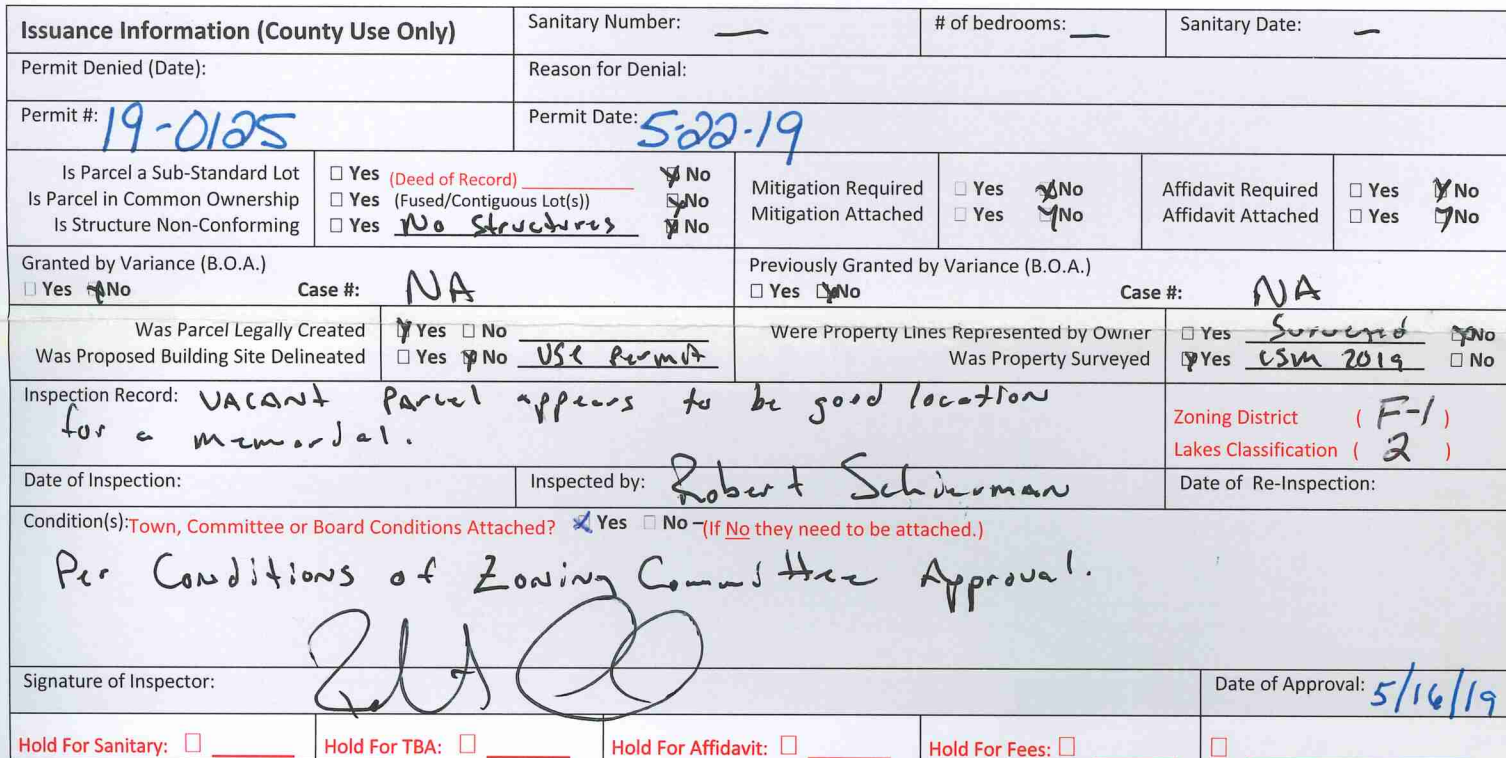 Issuance Information (County Use Only) Sanitary Number: — # of bedrooms: — Sanitary Date: —
Permit Denied (Date): Reason for Denial:
Permit #: 19-0125 Permit Date: 5-22-19
Is Parcel a Sub-Standard Lot ☐ Yes (Deed of Record) ☒ No
Is Parcel in Common Ownership ☐ Yes (Fused/Contiguous Lot(s)) ☒ No
Is Structure Non-Conforming ☐ Yes No Structures ☒ No
Mitigation Required ☐ Yes ☒ No
Mitigation Attached ☐ Yes ☒ No
Affidavit Required ☐ Yes ☒ No
Affidavit Attached ☐ Yes ☒ No
Granted by Variance (B.O.A.)
☐ Yes ☒ No Case #: NA
Previously Granted by Variance (B.O.A.)
☐ Yes ☒ No Case #: NA
Was Parcel Legally Created ☒ Yes ☐ No
Was Proposed Building Site Delineated ☐ Yes ☒ No Use Permit
Were Property Lines Represented by Owner ☐ Yes Surveyed ☒ No
Was Property Surveyed ☒ Yes CSM 2019 ☐ No
Inspection Record: VACANT Parcel appears to be good location
for a memordal.
Zoning District ( F-1 )
Lakes Classification ( 2 )
Date of Inspection: Inspected by: Robert Schierman Date of Re-Inspection:
Condition(s): Town, Committee or Board Conditions Attached? ☒ Yes ☐ No – (If No they need to be attached.)
Per Conditions of Zoning Committee Approval.
Signature of Inspector: Date of Approval: 5/16/19
Hold For Sanitary: ☐ Hold For TBA: ☐ Hold For Affidavit: ☐ Hold For Fees: ☐ ☐